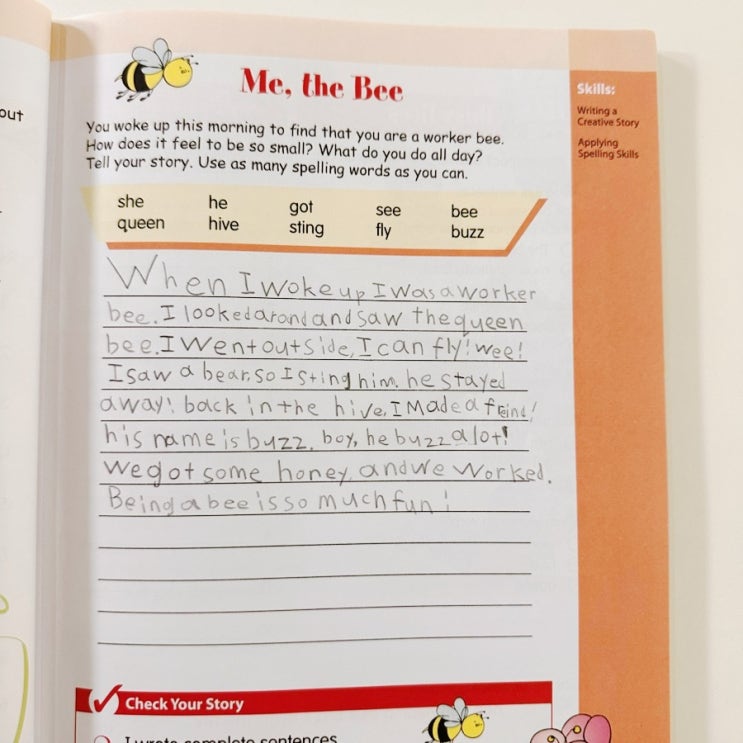 out
Me, the Bee
You woke up this morning to find that you are a worker bee.
How does it feel to be so small? What do you do all day?
Tell your story. Use as many spelling words as you can.
she he got see bee
queen hive sting fly buzz
Skills:
Writing a
Creative Story
Applying
Spelling Skills
When I woke up I was a worker
bee. I looked arond and saw the queen
bee. I went outside, I can fly! wee!
I saw a bear, so I sting him. he stayed
away! back in the hive, I made a freind!
his name is buzz. boy, he buzz a lot!
we got some honey, and we worked.
Being a bee is so much fun!
Check Your Story
I wrote complete sentences